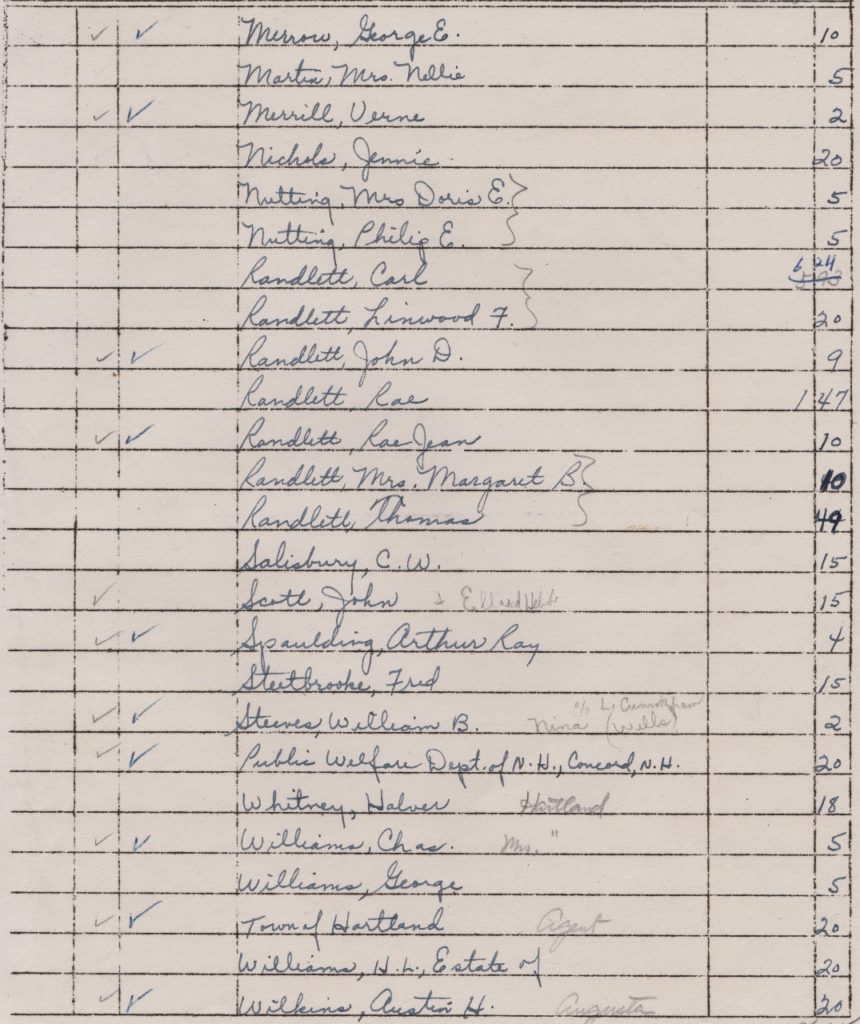 ✓ ✓ Merrow, George E. 10
Martin, Mrs. Nellie 5
✓ ✓ Merrill, Verne 2
Nichols, Jennie 20
Nutting, Mrs Doris E. } 5
Nutting, Philip E. } 5
Randlett, Carl } 6 24
Randlett, Linwood F. } 20
✓ ✓ Randlett, John D. 9
Randlett, Rae 1 47
✓ ✓ Randlett, Rae Jean 10
Randlett, Mrs. Margaret B } 10
Randlett, Thomas } 49
Salisbury, C. W. 15
✓ Scott, John 15
✓ ✓ Spaulding, Arthur Ray 4
Steetbrooke, Fred 15
c/o L. Cunningham
✓ ✓ Steeves, William B. Nina (Wills) 2
✓ ✓ Public Welfare Dept. of N.H., Concord, N.H. 20
Whitney, Halver Hartland 18
✓ ✓ Williams, Chas. Mrs. " 5
Williams, George 5
✓ ✓ Town of Hartland Agent 20
Williams, H.L., Estate of 20
✓ ✓ Wilkins, Austin H. Augusta 20